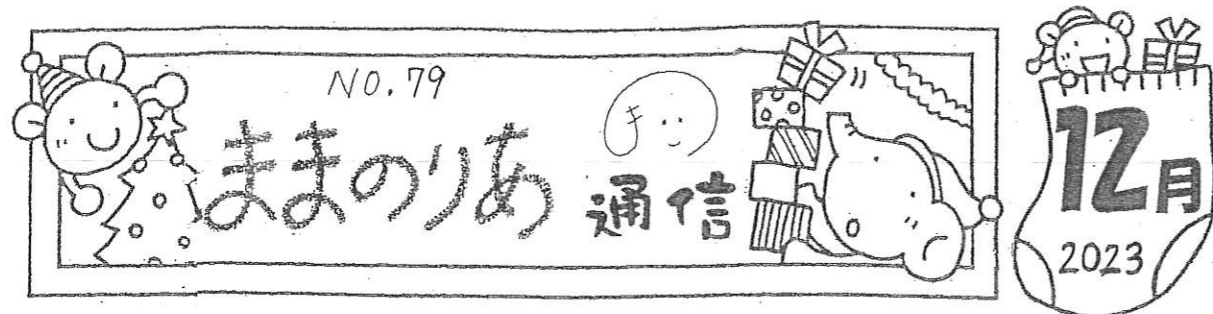 NO.79
ままのりあ 通信
ま
12月
2023